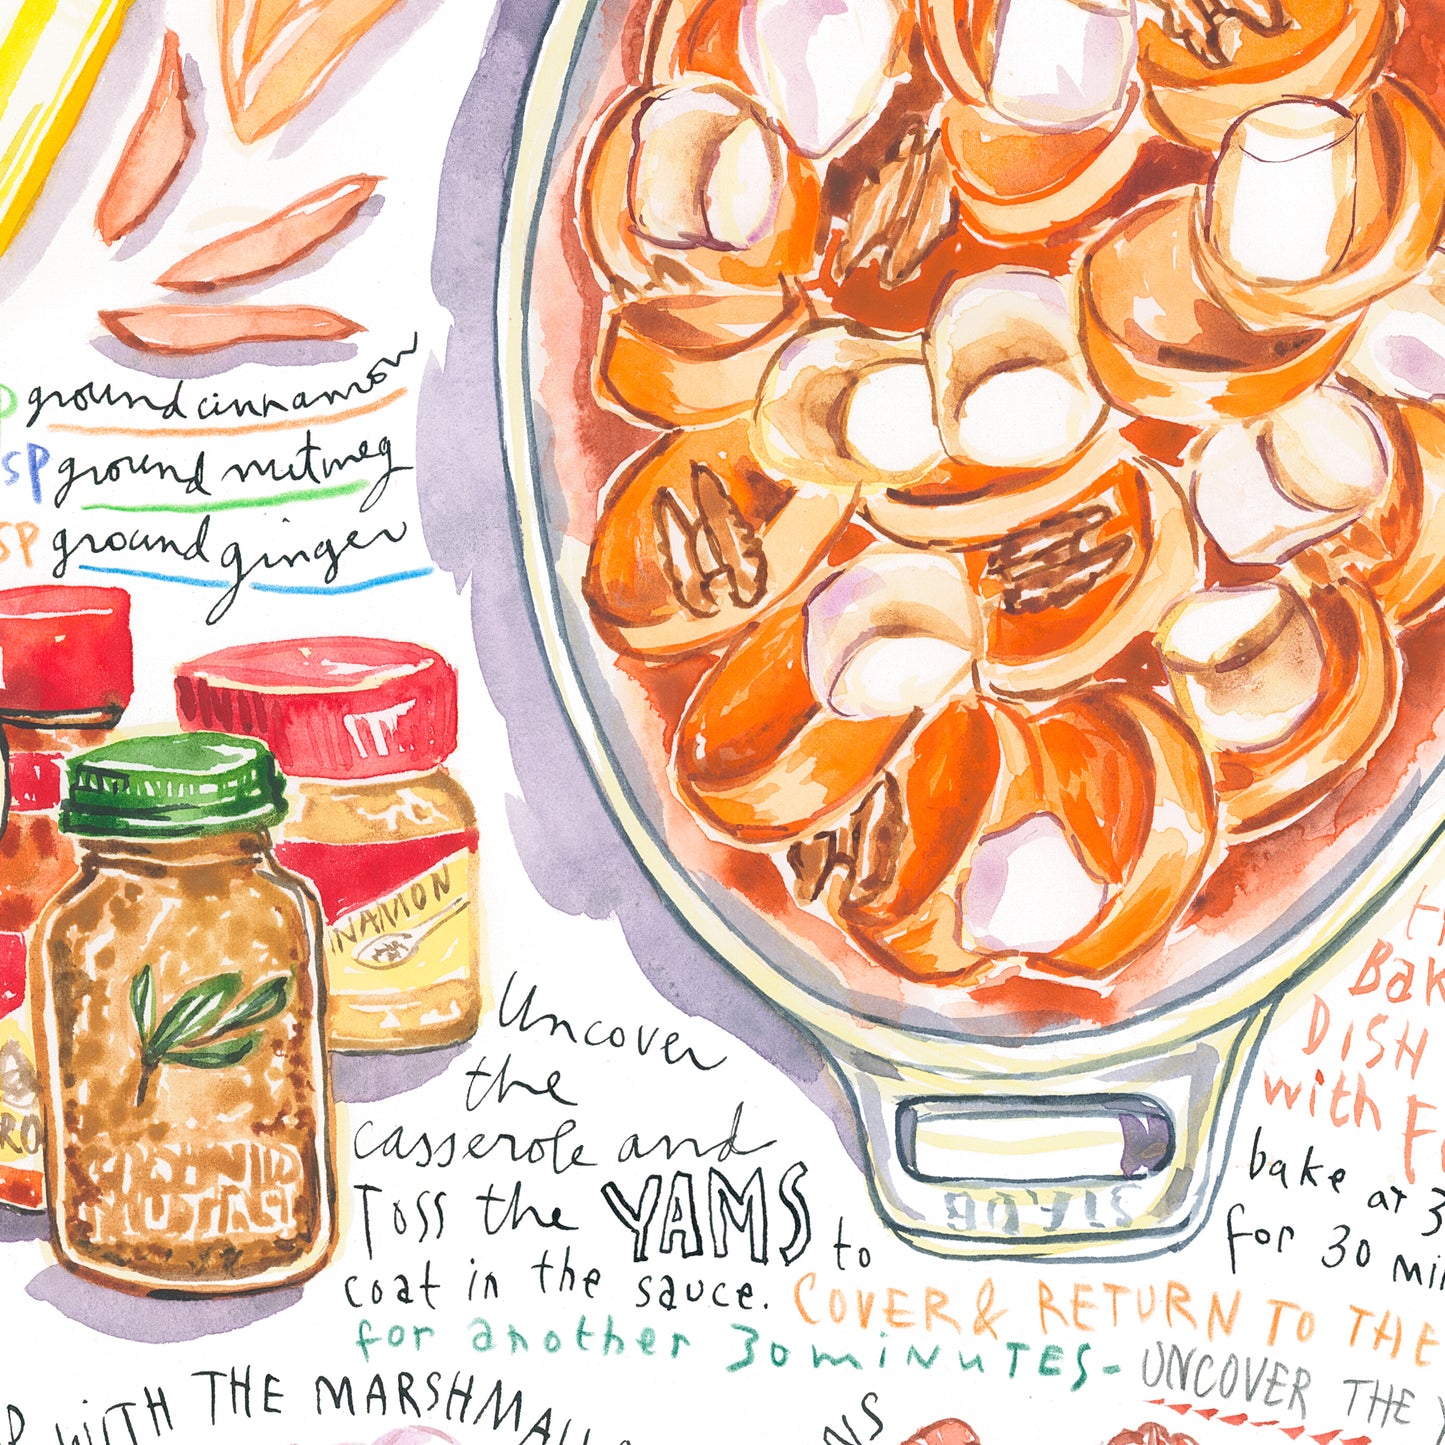 ground cinnamon
SP ground nutmeg
SP ground ginger
NAMON
Uncover
the
casserole and
Toss the YAMS to
coat in the sauce. COVER & RETURN TO THE
for another 30 minutes - UNCOVER THE
DISH
with
bake at 3
for 30 min
WITH THE MARSHMALL